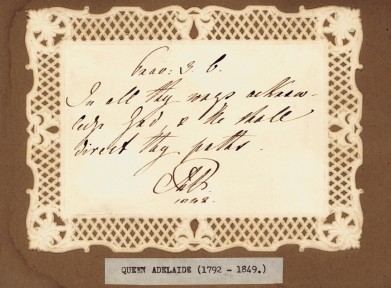 Prov: 3. 6.
In all thy ways acknow-
ledge God & He shall
direct thy paths.
QUEEN ADELAIDE (1792 - 1849.)